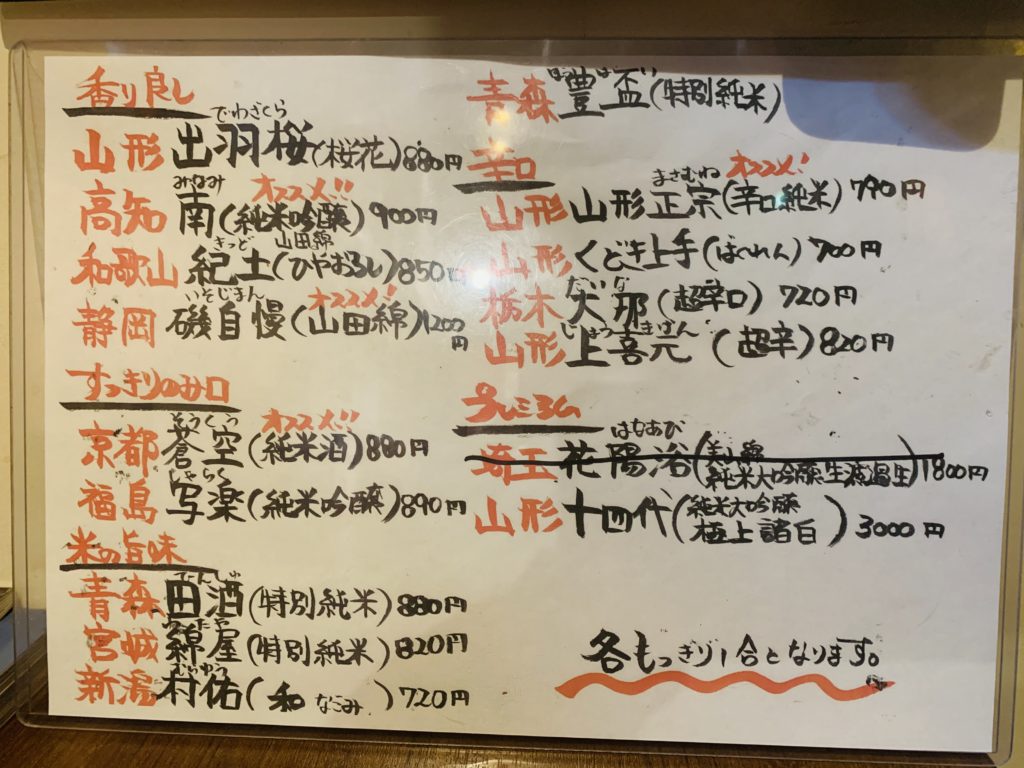 香り良し
でわざくら
山形 出羽桜(桜花)880円
みなみ オススメ!!
高知 南(純米吟醸)900円
きっど 山田錦
和歌山 紀土(ひやおろし)850円
いそじまん オススメ!
静岡 磯自慢(山田錦)1200円
すっきりのみ口
そうくう オススメ!!
京都 蒼空(純米酒)880円
しゃらく
福島 写楽(純米吟醸)890円
米の旨味
でんしゅ
青森 田酒(特別純米)880円
わたや
宮城 綿屋(特別純米)820円
むらゆう
新潟 村佑(和 なごみ)720円
ほうはい
青森 豊盃(特別純米)
辛口
まさむね オススメ!
山形 山形正宗(辛口純米)790円
山形 くどき上手(ばくれん)700円
だいな
栃木 大那(超辛口)720円
じょうきげん
山形 上喜元(超辛)820円
プレミアム
はなあび
埼玉 花陽浴(美山錦 純米大吟醸生無濾過生)1800円
山形 十四代(純米大吟醸 極上諸白)3000円
各もっきり1合となります。